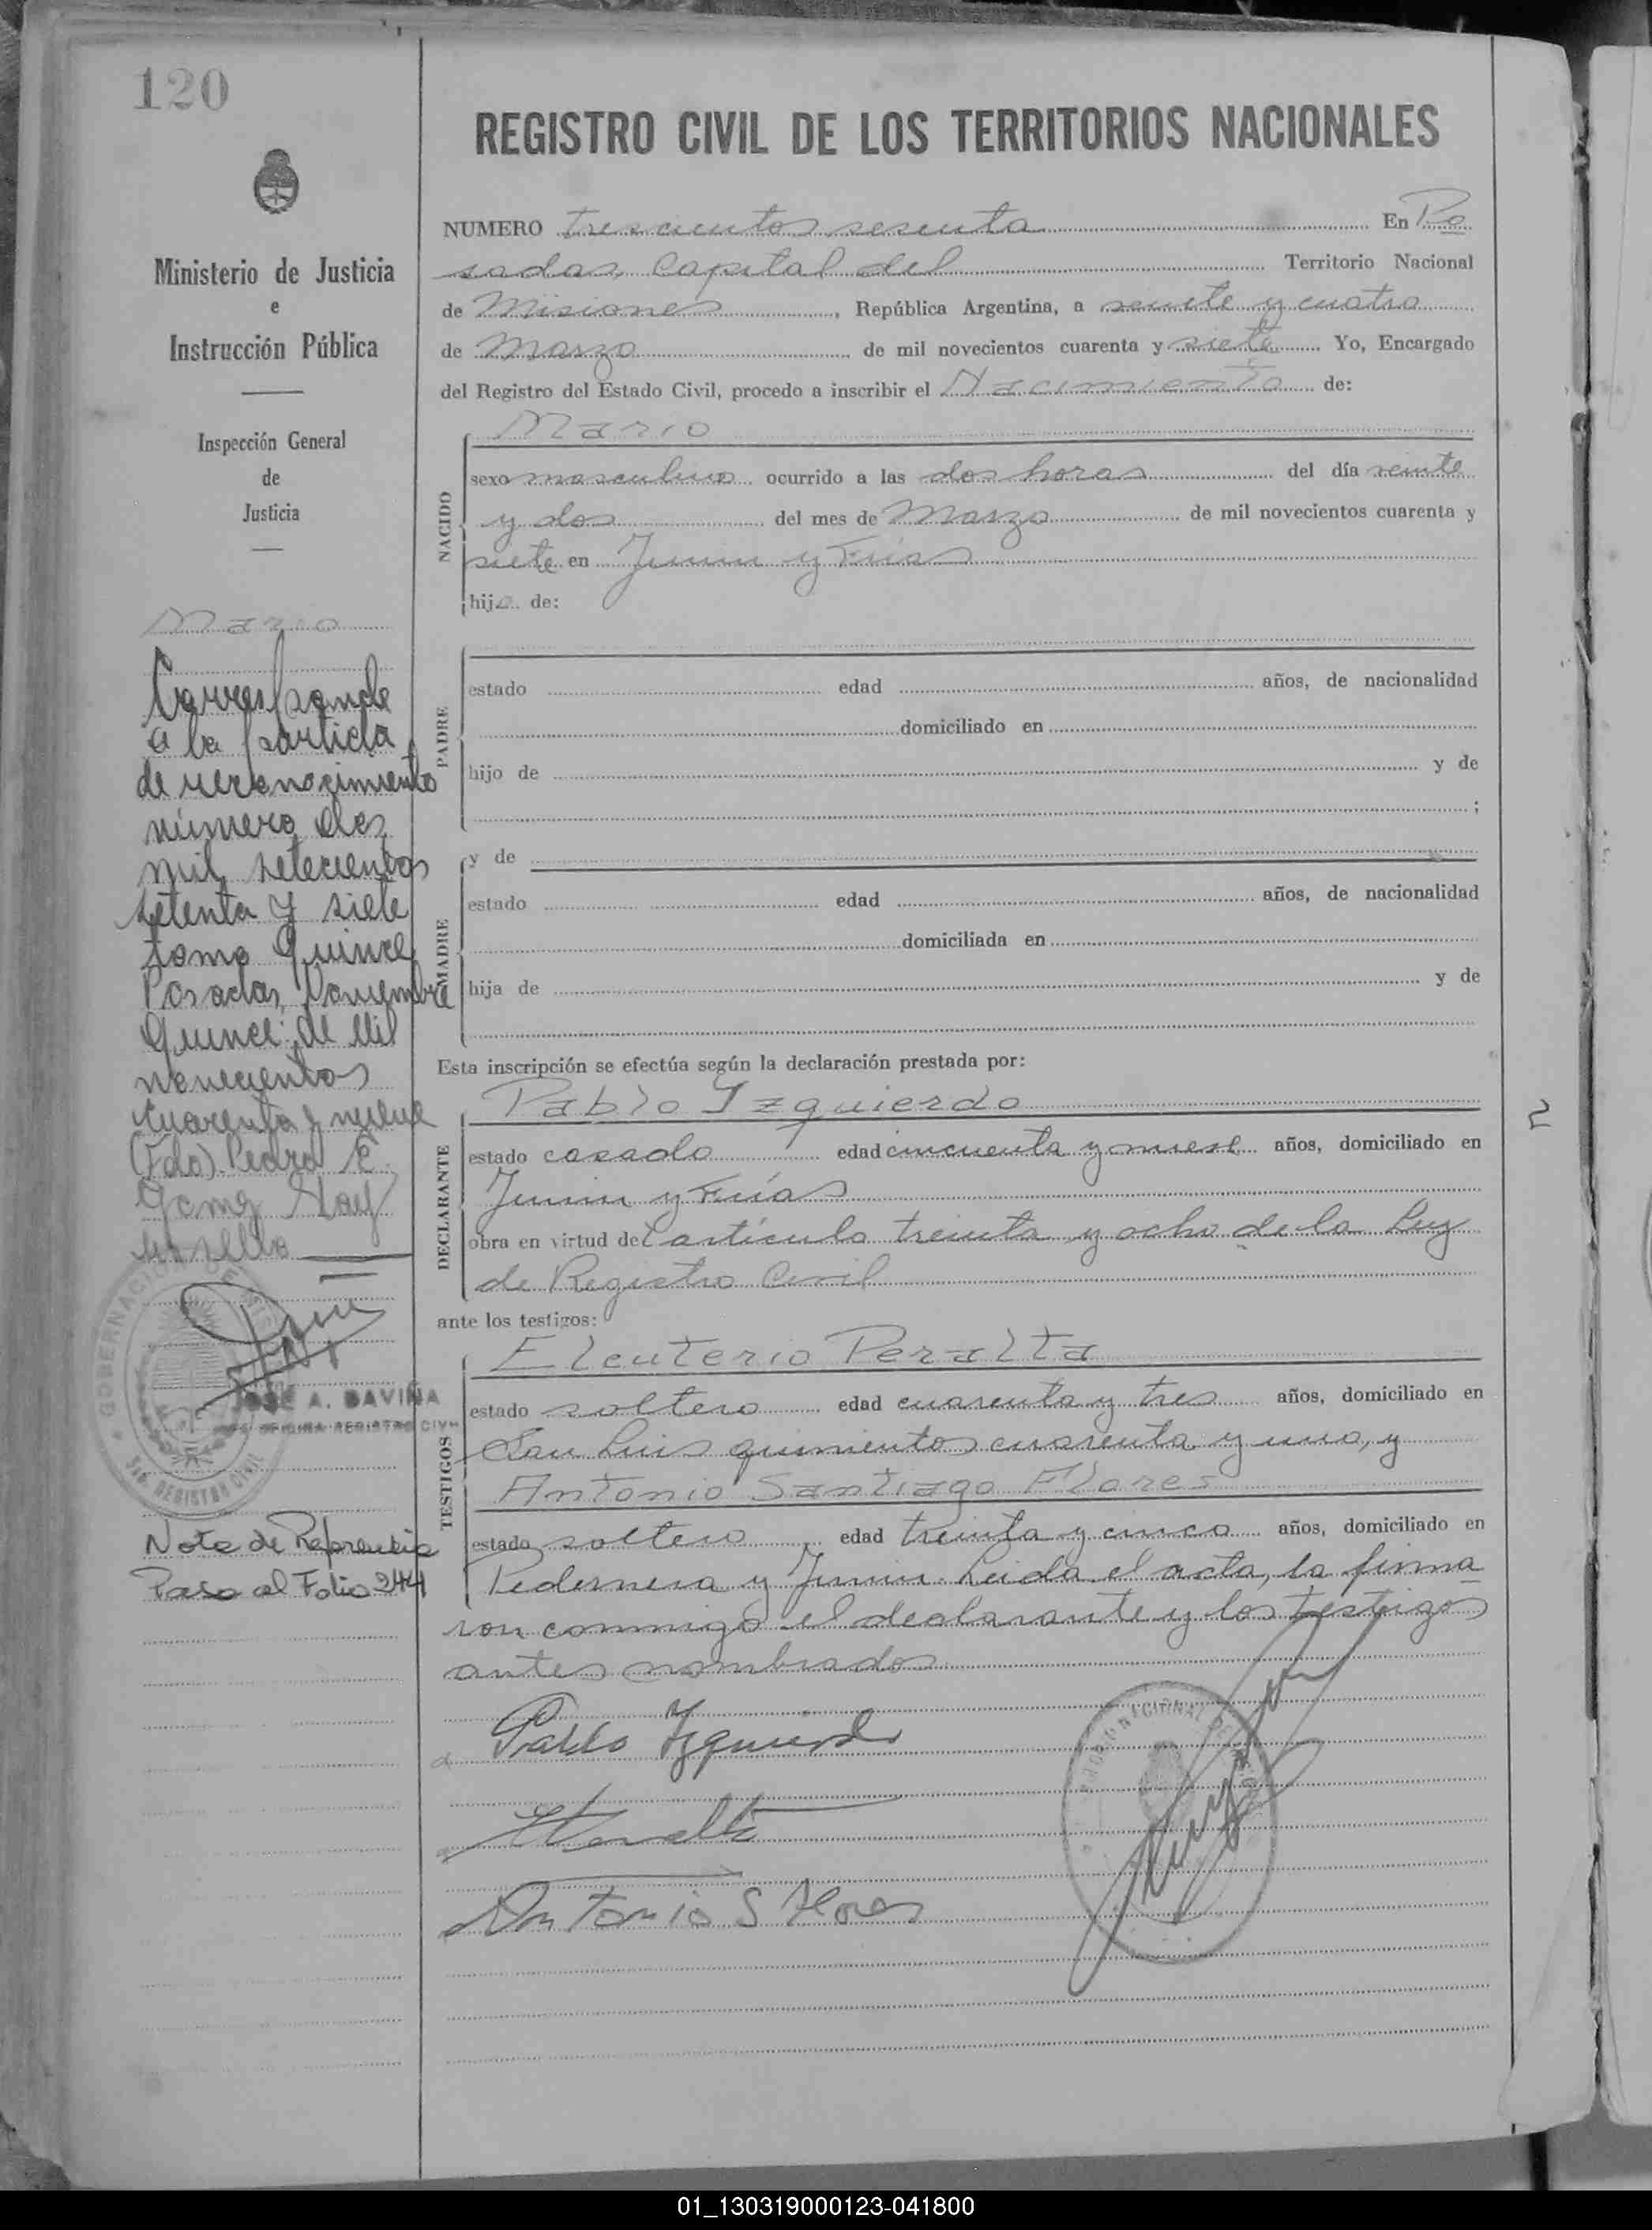 120
REGISTRO CIVIL DE LOS TERRITORIOS NACIONALES
Ministerio de Justicia
e
Instrucción Pública
Inspección General
de
Justicia
Mario
Corresponde
a la partida
de reconocimiento
número dos
mil setecientos
setenta y siete
tomo Quince
Posadas, Noviembre
Quince de Mil
novecientos
cuarenta y nueve
(Fdo) Pedro E.
Gomez
JOSE A. DAVIÑA
OFICINA REGISTRO CIVIL
Nota de Referencia
Pasa al Folio 244
NUMERO trescientos sesenta En Po
sadas, Capital del Territorio Nacional
de Misiones, República Argentina, a veinte y cuatro
de Marzo de mil novecientos cuarenta y siete Yo, Encargado
del Registro del Estado Civil, procedo a inscribir el Nacimiento de:
NACIDO
Mario
sexo masculino ocurrido a las dos horas del día veinte
y dos del mes de Marzo de mil novecientos cuarenta y
siete en Junin y Frías
hijo de:
PADRE
estado edad años, de nacionalidad
domiciliado en
hijo de y de
;
MADRE
y de
estado edad años, de nacionalidad
domiciliada en
hija de y de
Esta inscripción se efectúa según la declaración prestada por:
DECLARANTE
Pablo Izquierdo
estado casado edad cincuenta y nueve años, domiciliado en
Junin y Frías
obra en virtud del artículo treinta y ocho de la Ley
de Registro Civil
ante los testigos:
TESTIGOS
Eleuterio Peralta
estado soltero edad cuarenta y tres años, domiciliado en
San Luis quinientos cuarenta y uno, y
Antonio Santiago Flores
estado soltero edad treinta y cinco años, domiciliado en
Pedernera y Junin. Leida el acta, la firma
ron conmigo el declarante y los testigos
antes nombrados
Pablo Izquierdo
EPeralta
Antonio S Flores
01_130319000123-041800